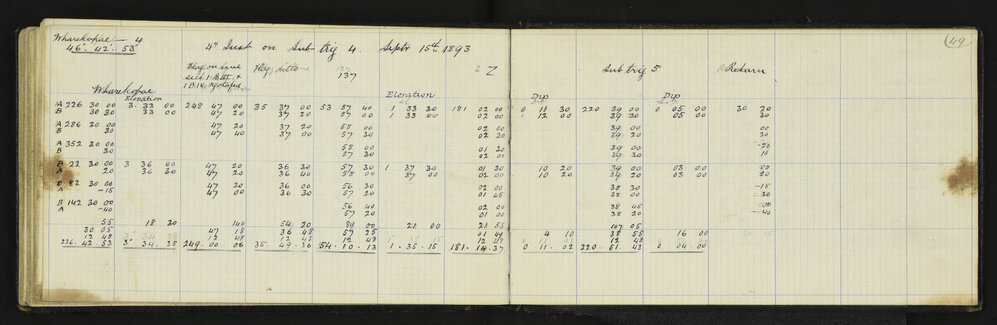 Wharekopae 4
46° 42' 53"
4" Inst on Sub trig 4. Septr 15th 1893
49
Flag on line
Flag ditto
137
137
Z
Sub trig 5
Return
Wharekopae
Elevation
Elevation
Dip
Dip
A 226 30 00 3. 33 00 248 47 00 35 37 00 53 57 40 1 33 30 181 02 00 0 11 30 220 39 00 0 05 00 30 20
B 30 30 33 00 47 20 37 20 57 00 1 33 00 02 00 0 12 00 39 20 05 00 30
A 286 30 00 47 20 37 20 58 00 02 00 39 00
B 30 47 40 37 00 57 30 02 20 39 20 30
A 352 30 00 58 00 01 20 39 00 -20
B 30 57 30 02 00 39 30 10
B 22 30 00 3 36 00 47 20 36 30 57 30 1 37 30 01 30 10 20 39 00 03 00 00
A 20 36 30 47 20 36 40 58 00 37 00 02 00 10 20 39 20 03 00 20
B 82 30 00 47 20 36 00 56 30 02 00 38 30 -15
A -15 47 00 36 30 57 20 01 45 38 30 -30
B 142 30 00 56 40 02 00 38 45 00
A -40 57 20 01 00 38 20 -40
55 18 30 140 54 20 89 00 21 00 21 55 107 05
30 05 47 18 36 48 57 25 01 49 4 10 38 55 16 00
12 48 12 48 12 48 12 48 12 48 12 48
226. 42 53 3° 34. 38 249. 00 06 35. 49. 36 54. 10. 13 1. 35. 15 181. 14. 37 0 11. 02 220. 51. 43 0 04. 00